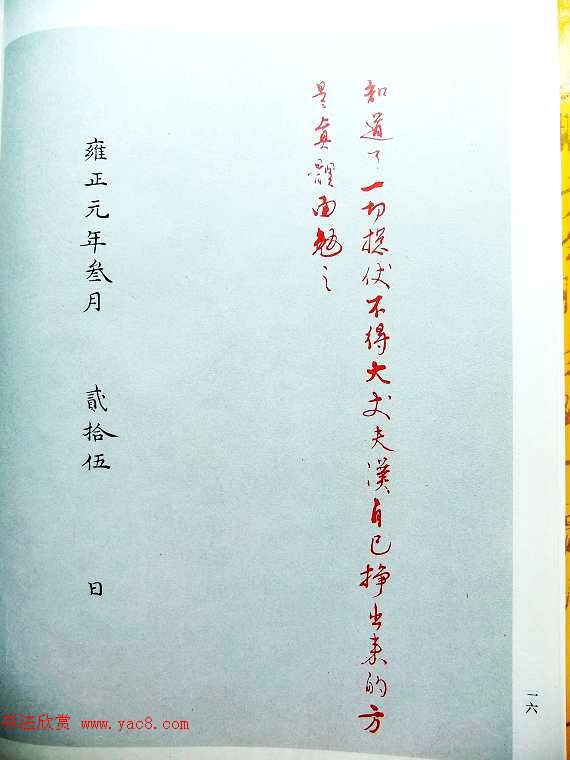 知道了一切捴伏不得大丈夫漢自己掙出来的方
是真體面勉之
雍正元年叁月 貳拾伍 日
一六
书法欣赏 www.yac8.com